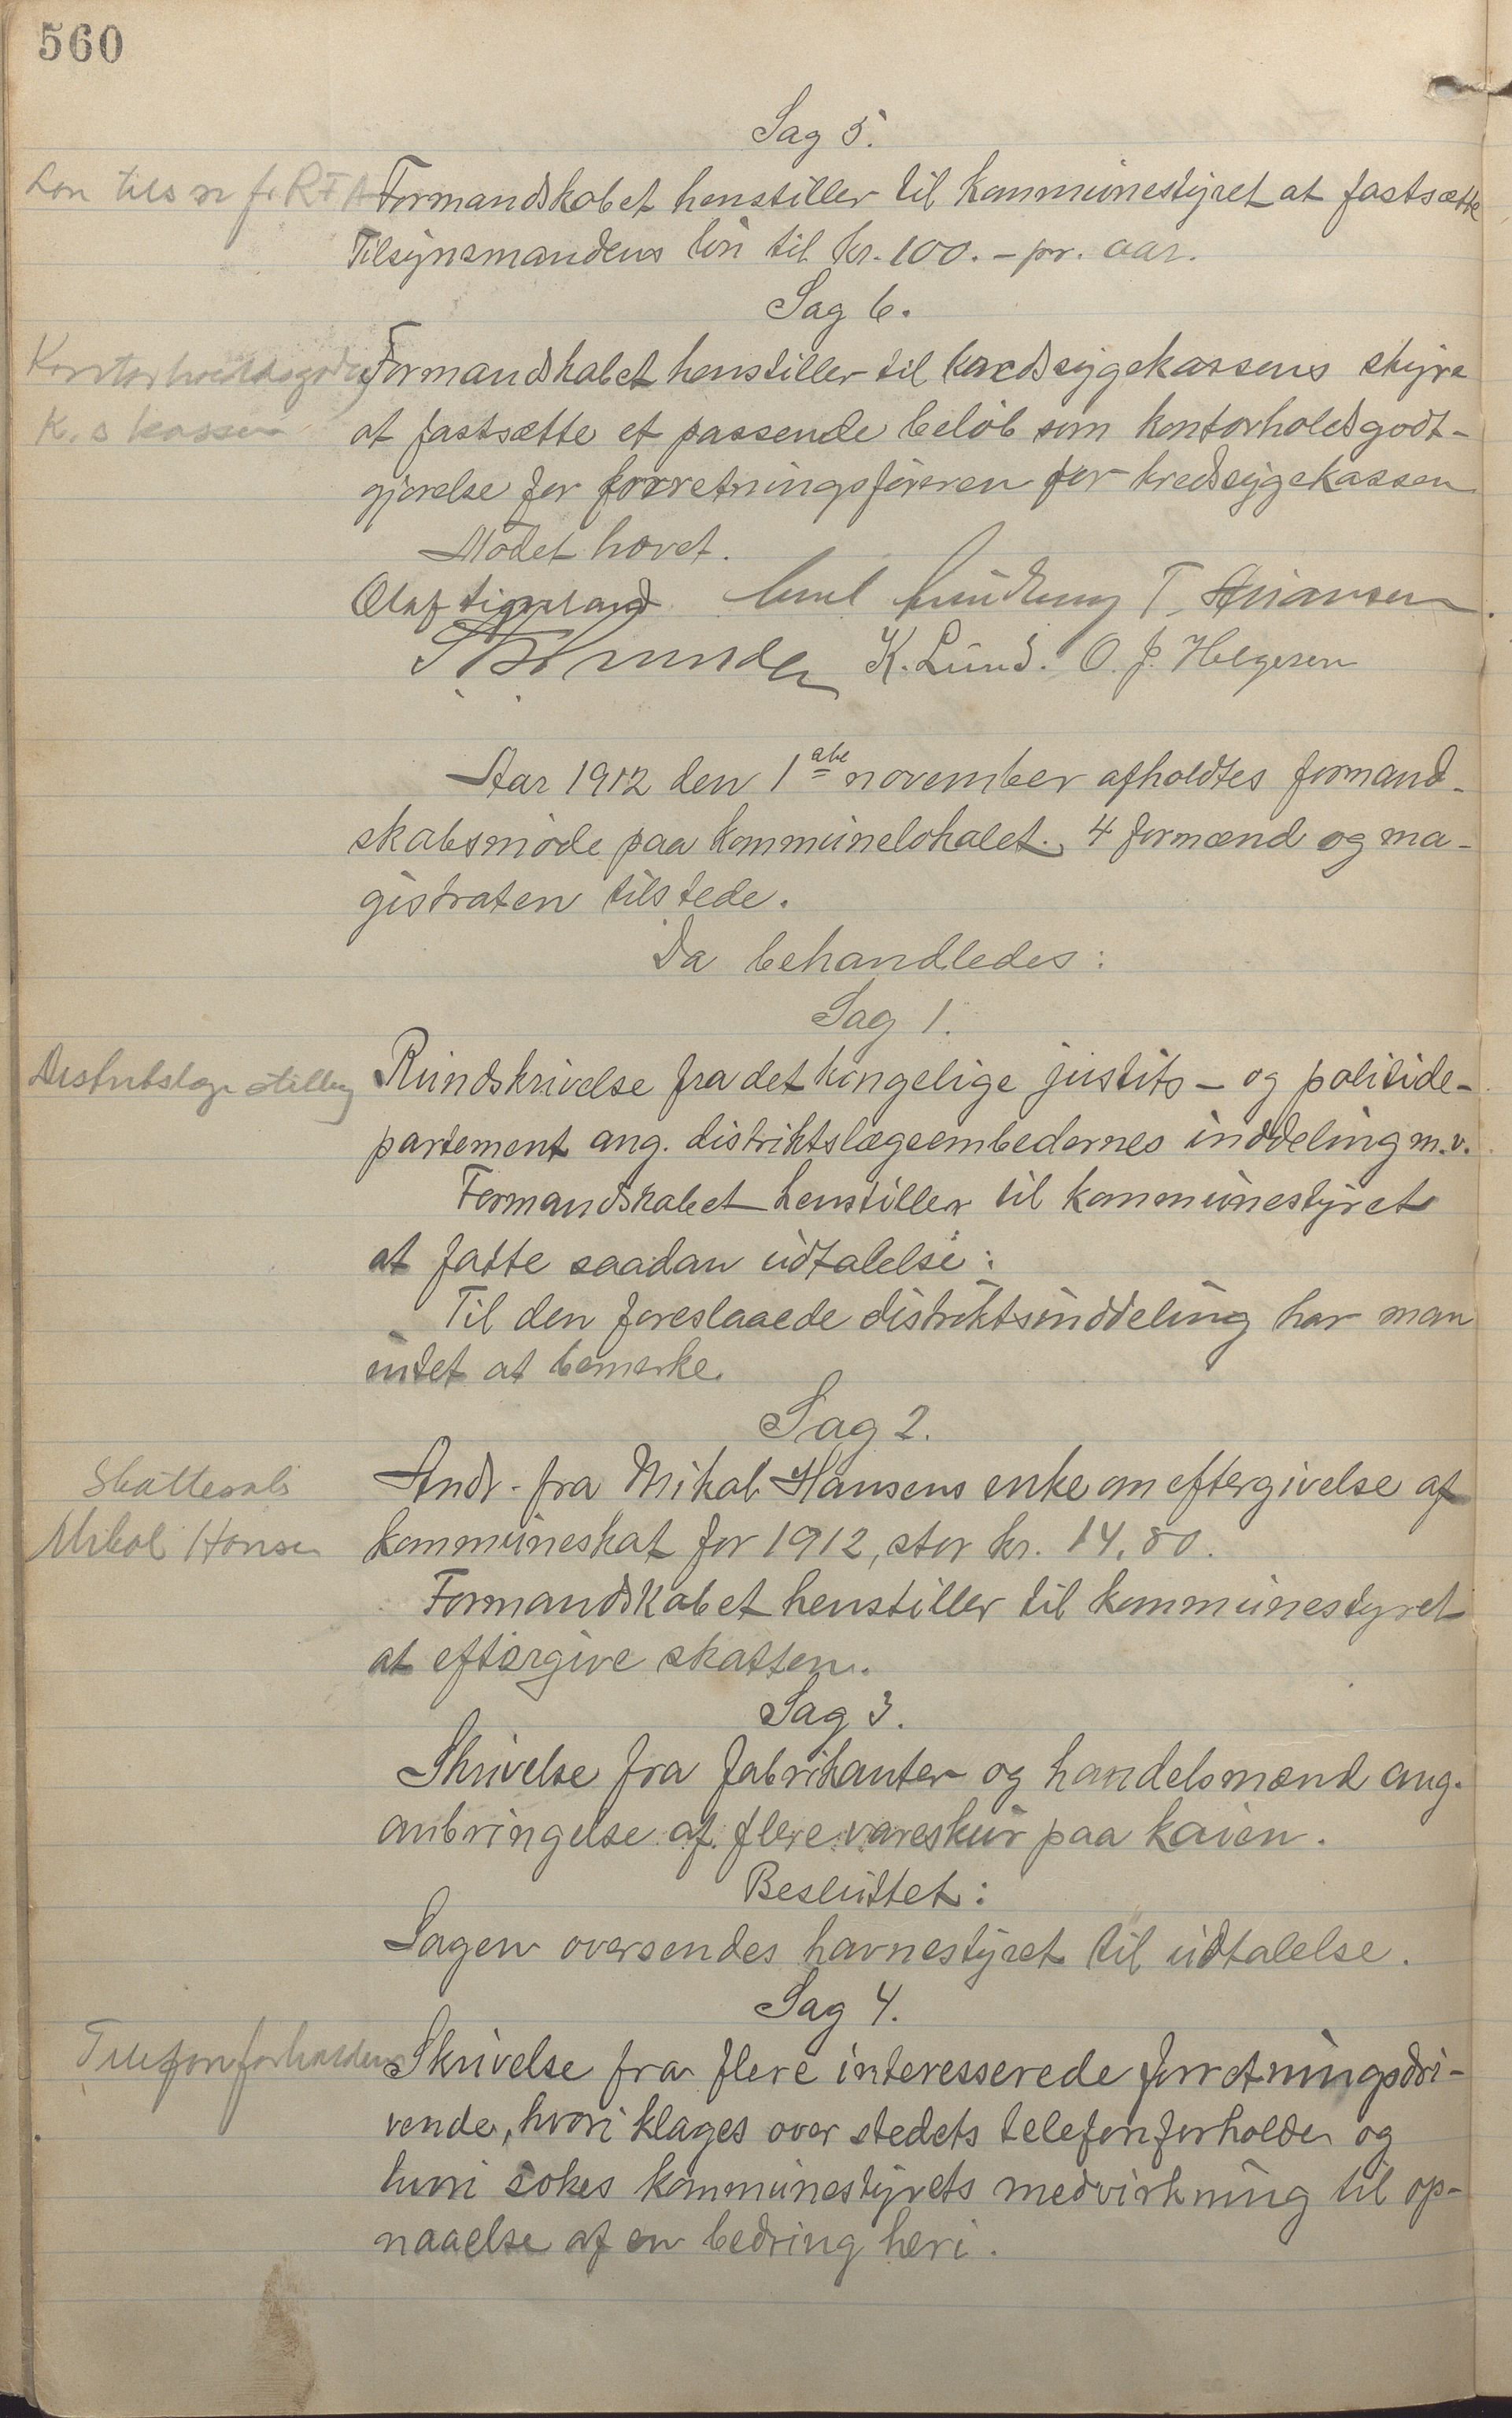 560
Sag 5.
Løn tils n f. R F A
Formandskabet henstiller til kommunestyret at fastsætte
Tilsynsmandens løn til kr. 100.- pr. aar.
Sag 6.
Kontorholdsgodtg
K. s kassen
Formandskabet henstiller til kredssygekassens styre
at fastsætte et passende beløb som kontorholdsgodt-
gjørelse for forretningsføreren for kredssygekassen
Mødet hævet.
Olaf K. Lund. O. J. Helgesen
Aar 1912 den 1ste november afholdtes formand-
skabsmøde paa kommunelokalet. 4 formænd og ma-
gistraten tilstede.
Da behandledes:
Sag 1.
Distriktslæge stilling
Rundskrivelse fra det kongelige justits- og politide-
partement ang. distriktslægeembedernes inddeling m.v.
Formandskabet henstiller til kommunestyret
at fatte saadan udtalelse:
Til den foreslaaede distriktsinddeling har man
intet at bemerke.
Sag 2.
Mikal Hansen
Andr. fra Mikal Hansens enke om eftergivelse af
kommuneskat for 1912, stor kr. 14.80.
Formandskabet henstiller til kommunestyret
at eftergive skatten.
Sag 3.
Skrivelse fra fabrikanter og handelsmænd ang.
anbringelse af flere vareskur paa kaien.
Besluttet:
Sagen oversendes havnestyret til udtalelse.
Sag 4.
Telefonforholdene
Skrivelse fra flere interesserede forretningsdri-
vende, hvori klages over stedets telefonforholde og
hvori søkes kommunestyrets medvirkning til op-
naaelse af en bedring heri.